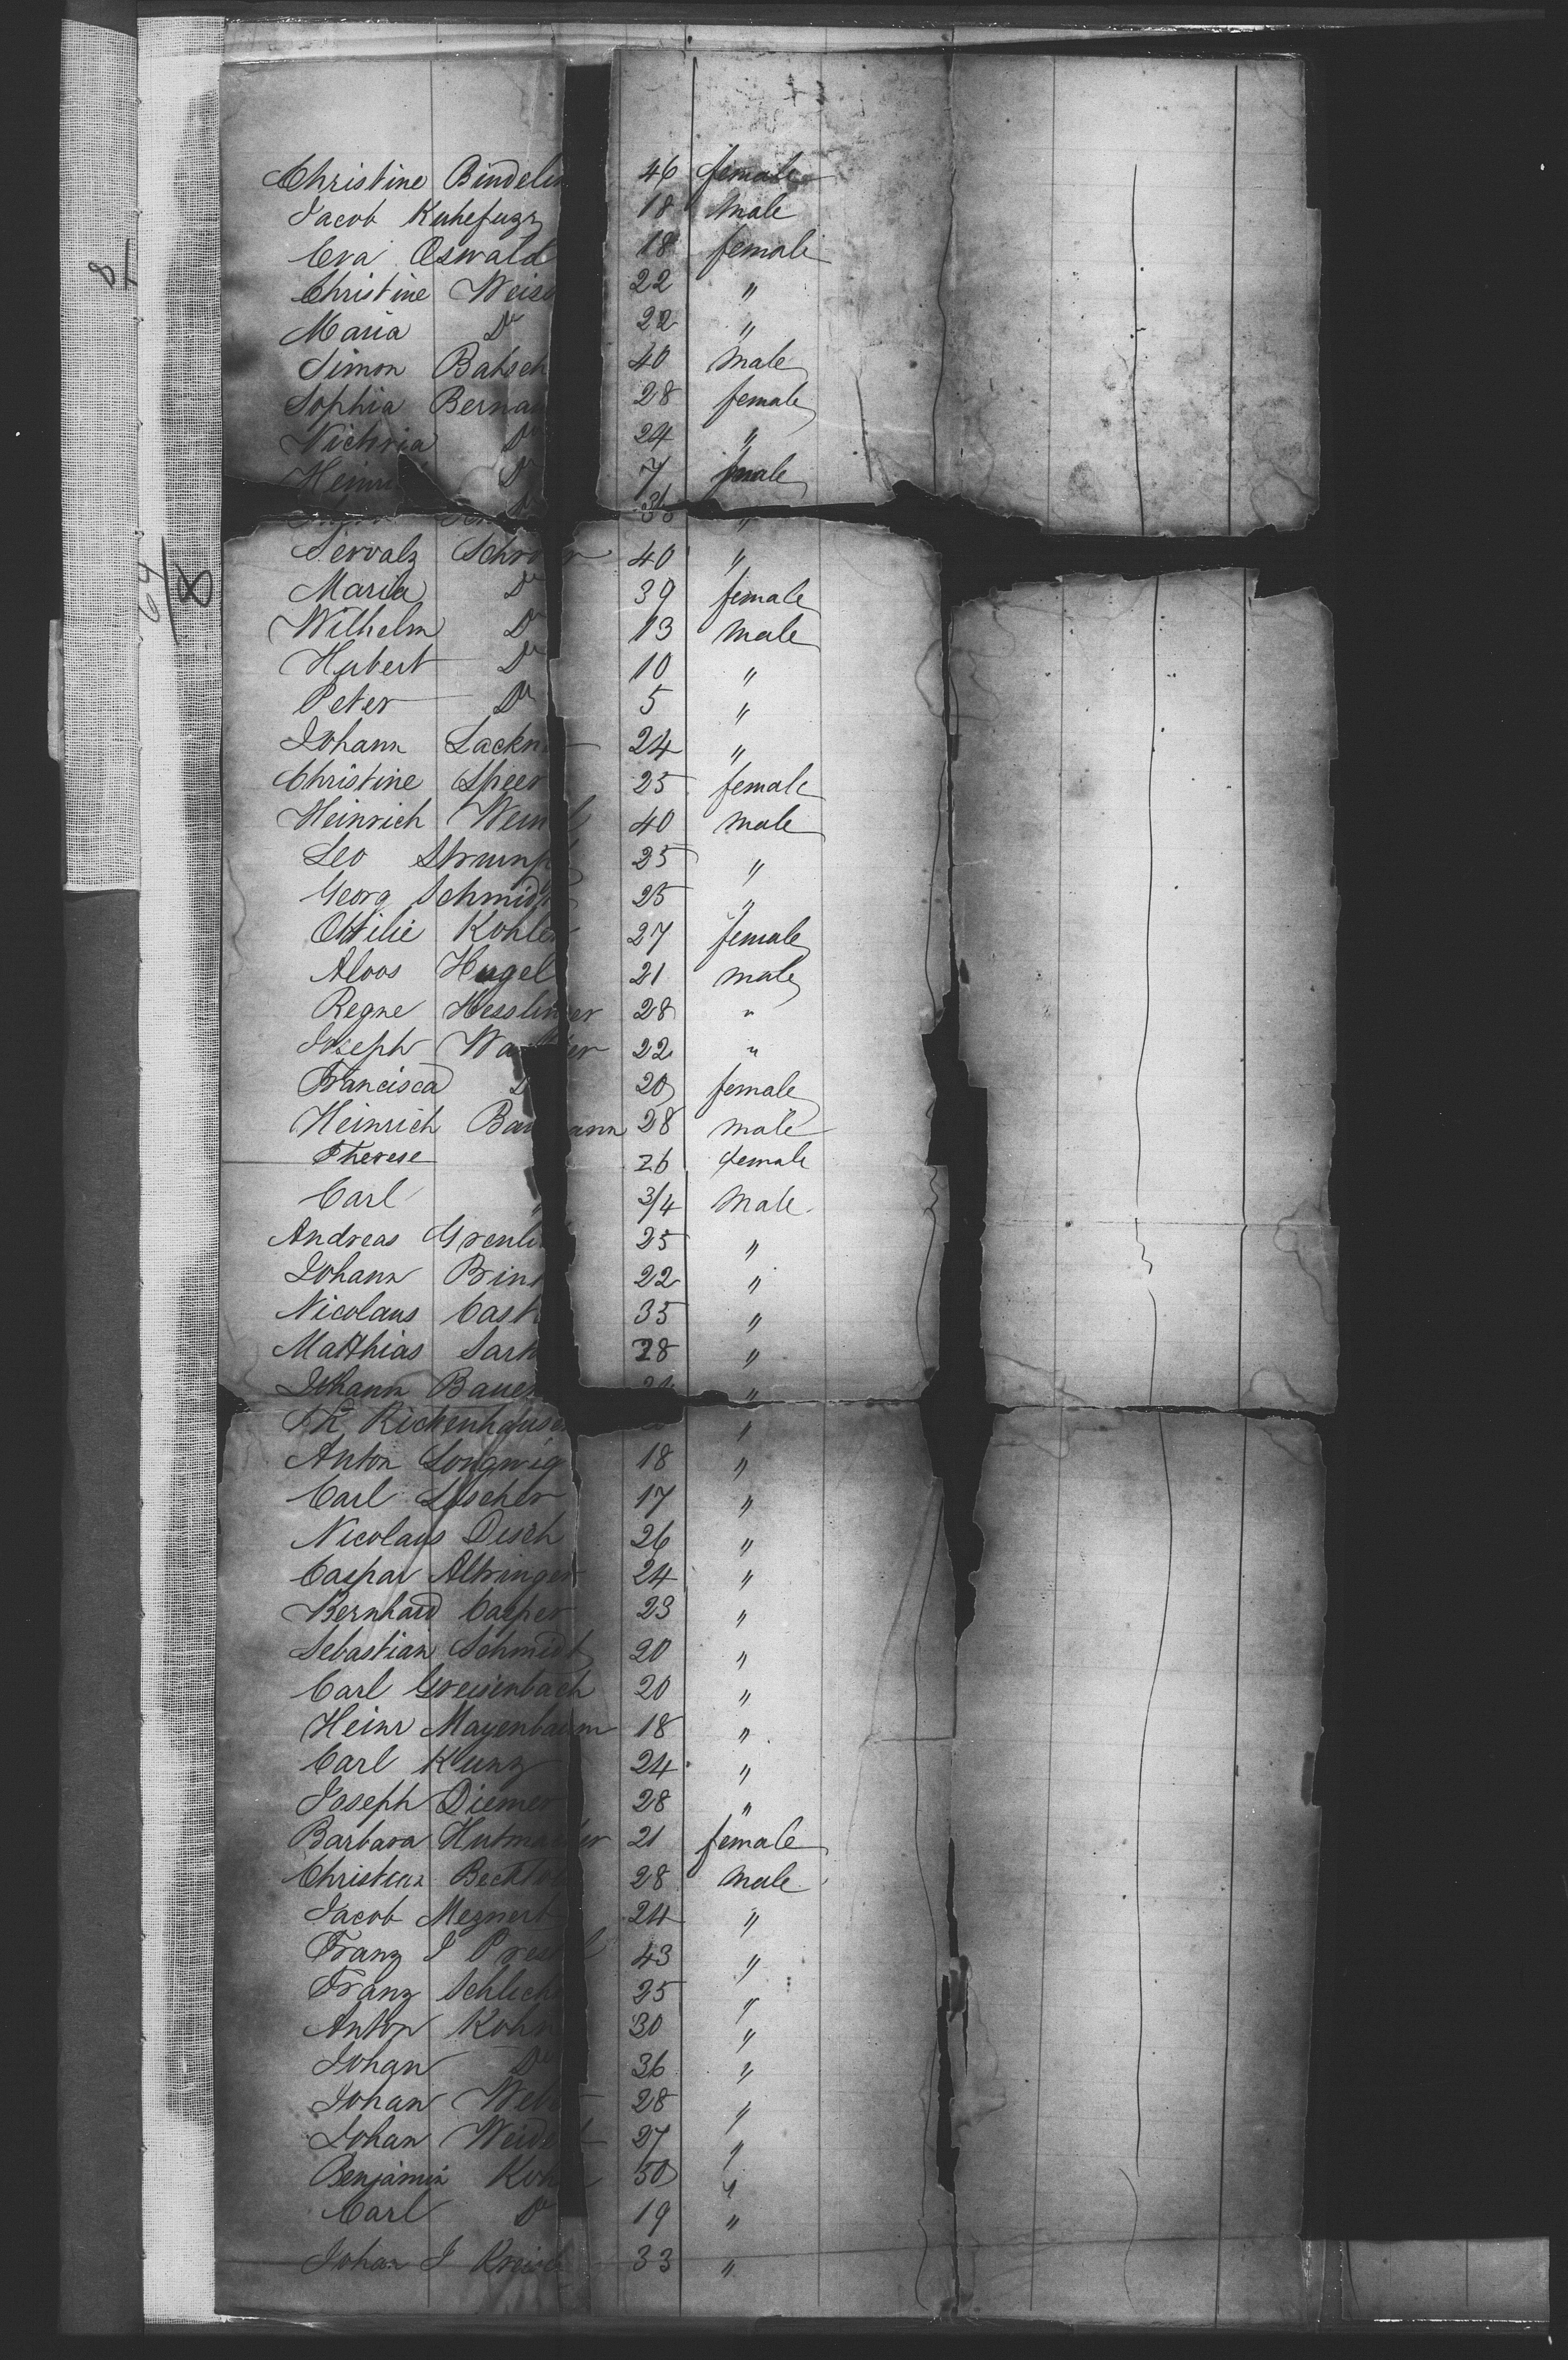 Christine Bindel 46 female
Jacob Kuhefuzz 18 male
Eva Oswald 18 female
Christine Weis 22 "
Maria Do 22 "
Simon Batsch 40 male
Sophia Berna 28 female
Victoria Do 24 "
Heinri Do 7 male
36 "
Servalz Schr er 40 "
Maria Do 39 female
Wilhelm Do 13 male
Hubert Do 10 "
Peter Do 5 "
Johann Lackn 24 "
Christine Speer 25 female
Heinrich Wein l 40 male
Leo Strumpf 25 "
Georg Schmidt 25 "
Ottilie Kohler 27 female
Aloos Hugel 21 male
Regne Hesslinger 28 "
Joseph Wa er 22 "
Francisca D 20 female
Heinrich Bau ann 28 male
Therese 26 female
Carl " 3/4 Male
Andreas Grenli 25 "
Johann Brin 22 "
Nicolaus Cast 35 "
Matthias Sark 28 "
Johann Bauer "
Rickenhauser "
Anton Longwig 18 "
Carl Loscher 17 "
Nicolaus Disch 26 "
Caspar Altringer 24 "
Bernhard Casper 23 "
Sebastian Schmidt 20 "
Carl Greisenbach 20 "
Heinr Mayenbaum 18 "
Carl Kunz 24 "
Joseph Diemer 28 "
Barbara Hutmacher 21 female
Christian Becktol 28 male
Jacob Meznert 24 "
Franz J Pres l 43 "
Franz Schlich 25 "
Anton Kohn 30 "
Johan Do 36 "
Johan Web 28 "
Johan Weid 27 "
Benjamin Koh 50 "
Carl Do 19 "
Johan J Kreis 33 "